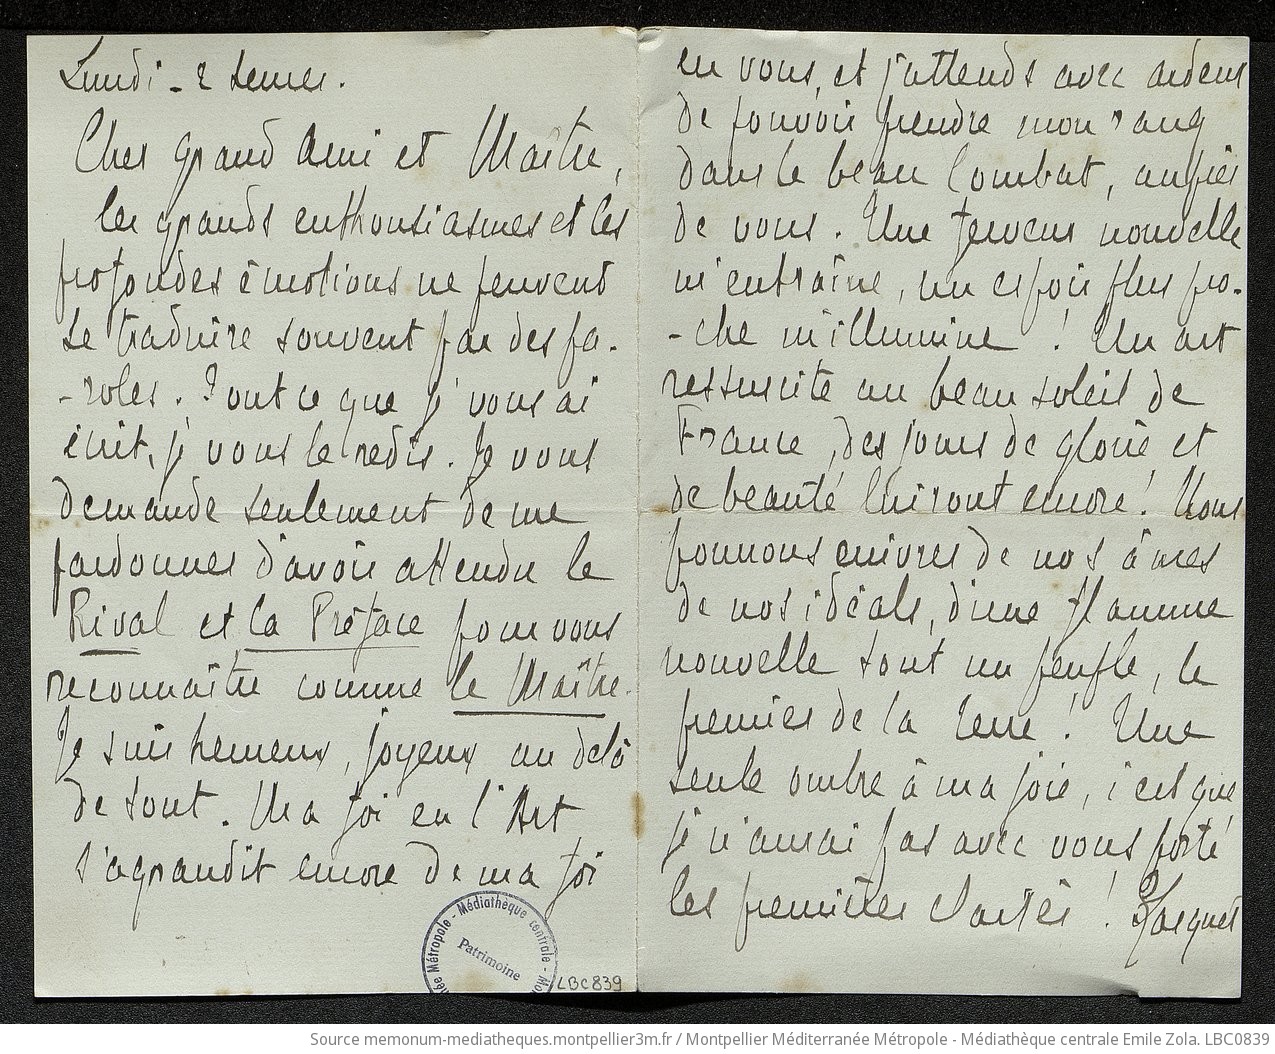 Lundi - 2 heures.
Cher grand Ami et Maître,
les grands enthousiasmes et les
profondes émotions ne peuvent
se traduire souvent par des pa-
-roles. Tout ce que j' vous ai
écrit, j' vous le redis. Je vous
demande seulement de me
pardonner d'avoir attendu le
Rival et la Préface pour vous
reconnaître comme le Maître.
Je suis heureux, joyeux au delà
de tout. Ma foi en l'Art
s'agrandit encore de ma foi
en vous, et j'attends avec ardeur
de pouvoir prendre mon rang
dans le beau Combat, auprès
de vous. Une ferveur nouvelle
m'entraîne, un espoir plus pro-
-che m'illumine ! Un art
ressuscite au beau soleil de
France, des jours de gloire et
de beauté luiront encore ! Nous
pourrons enivrer de nos âmes
de nos idéals, d'une flamme
nouvelle tout un peuple, le
premier de la terre ! Une
seule ombre à ma joie, c'est que
je n'aurai pas avec vous porté
les premières clartés ! Jacques
Médiathèque centrale
Métropole
Patrimoine
LBC839
Source memonum-mediatheques.montpellier3m.fr / Montpellier Méditerranée Métropole - Médiathèque centrale Emile Zola. LBC0839